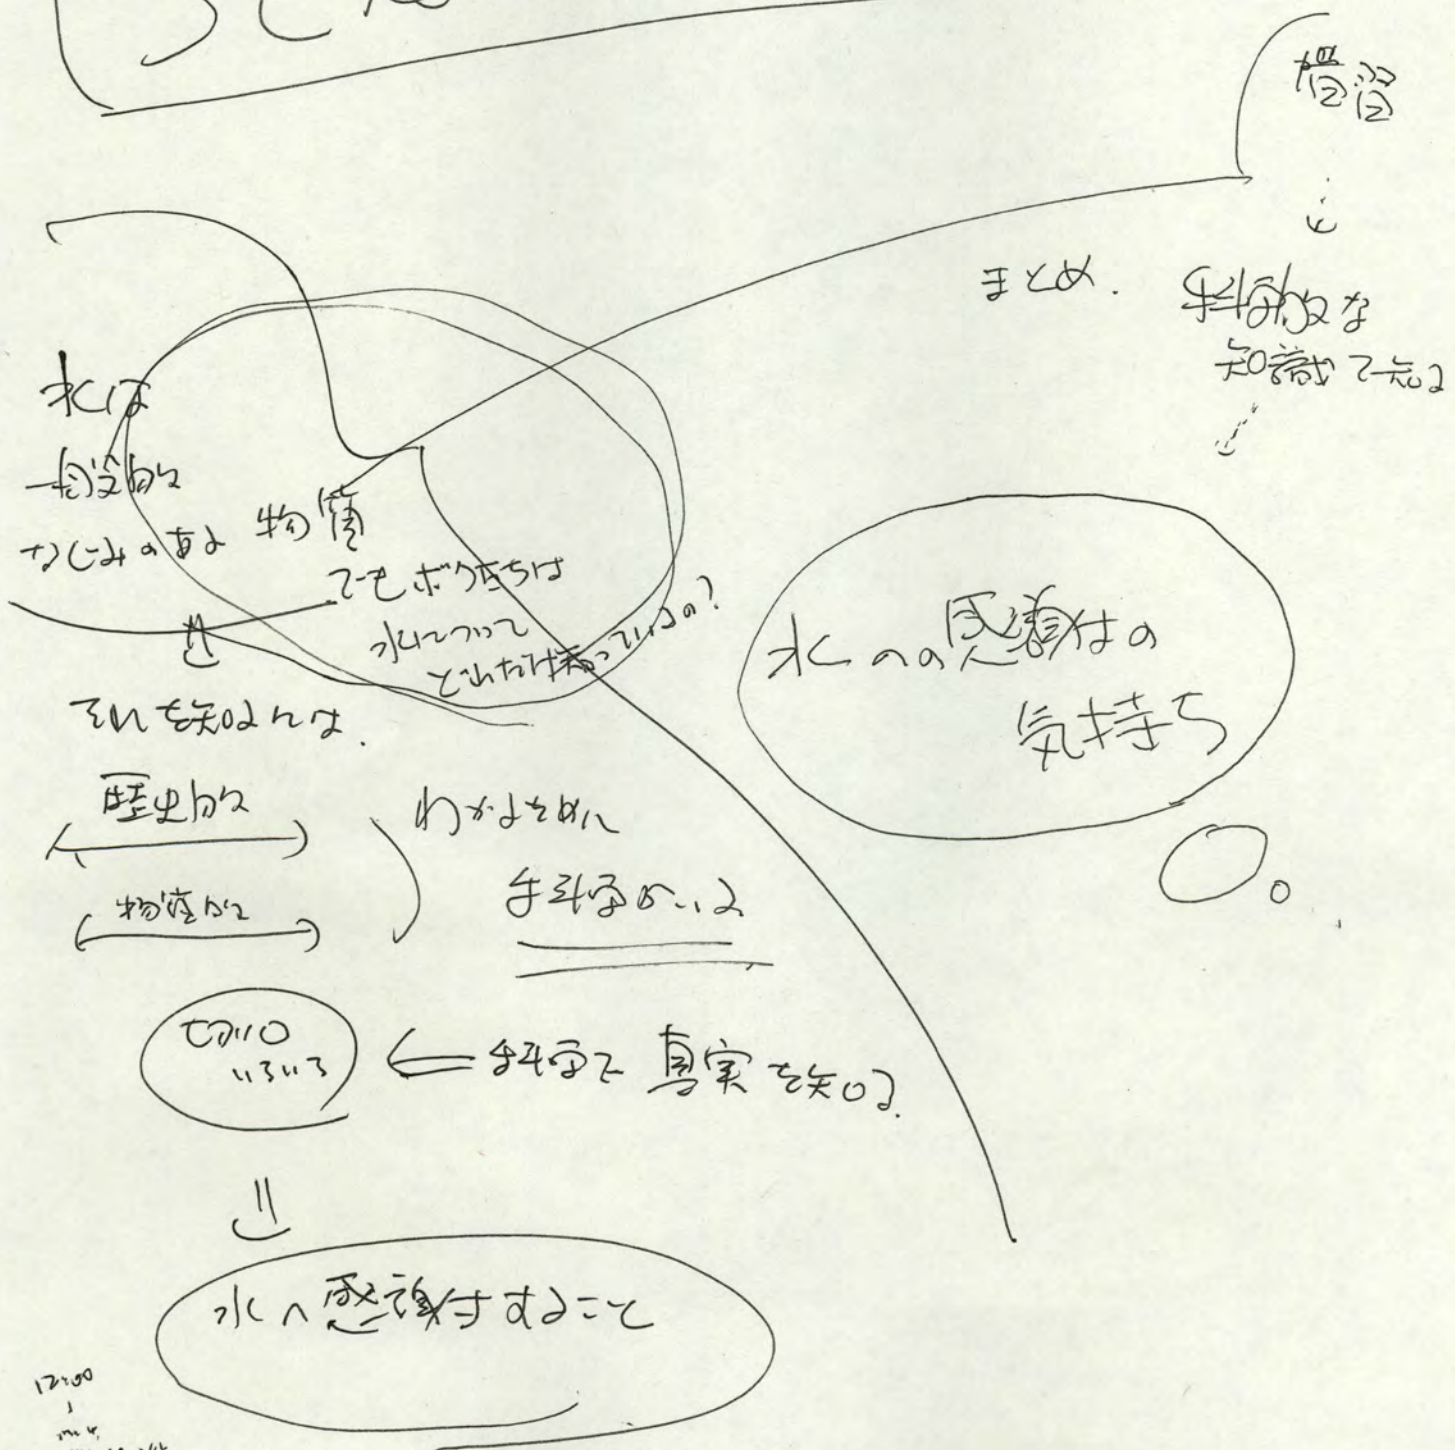 慣習
まとめ.
科学的な
知識で知る
水は
一般的
なじみのある 物質
でもボクたちは
水について
どれだけ知っているの?
それを知るには.
歴史的
物質的
わかるために
科学がいる
いろいろ
科学で 真実を知る.
水への感謝の
気持ち
水へ感謝すること
12:00